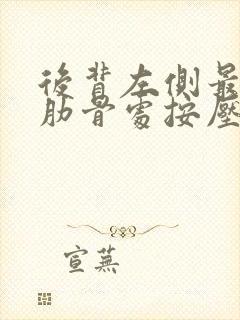 後背左側最
肋骨處按壓
宣蕪